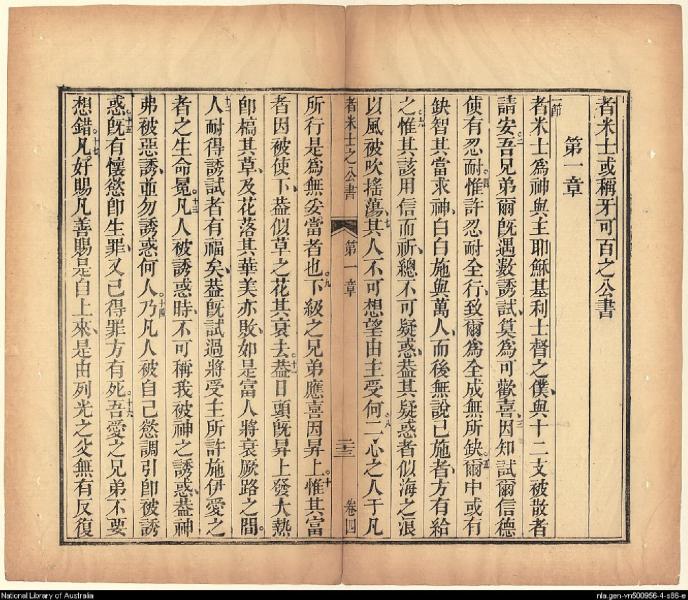 者米士或稱牙可百之公書
第一章
一節
者米士爲神與主耶穌基利士督之僕與十二支被散者
請安二吾兄弟爾旣遇數誘試莫爲可歡喜三因知試爾信德
使有忍耐四惟許忍耐全行致爾爲全成無所缺五爾中或有
缺智其當求神白白施與萬人而後無說已施者方有給
之六惟其該用信而祈總不可疑惑葢其疑惑者似海之浪
以風被吹搖蕩七其人不可想望由主受何八二心之人于凡
者米士之公書
第一章
二十三
卷四
所行是爲無妥當者也九下級之兄弟應喜因昇上十惟其富
者因被使下葢似草之花其衰去十一葢日頭旣昇上發大熱
卽槁其草及花落其華美亦敗如是富人將衰厥路之間
十二人耐得誘試者有福矣葢旣試過將受主所許施伊愛之
者之生命冕十三凡人被誘惑時不可稱我被神之誘惑葢神
弗被惡誘並勿誘惑何人十四乃凡人被自己慾調引卽被誘
惑十五旣有懷慾卽生罪又已得罪方有死十六吾愛之兄弟不要
想錯十七凡好賜凡善賜是自上來是由列光之父無有反復
National Library of Australia
nla.gen-vn500956-4-s86-e